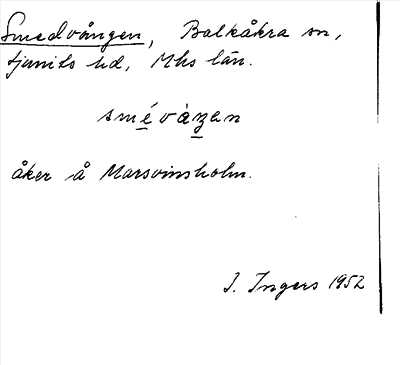 Smedvången, Balkåkra sn,
Ljunits hd, Mhs län.
smévàꞑen
åker å Marsvinsholm.
I. Ingers 1952